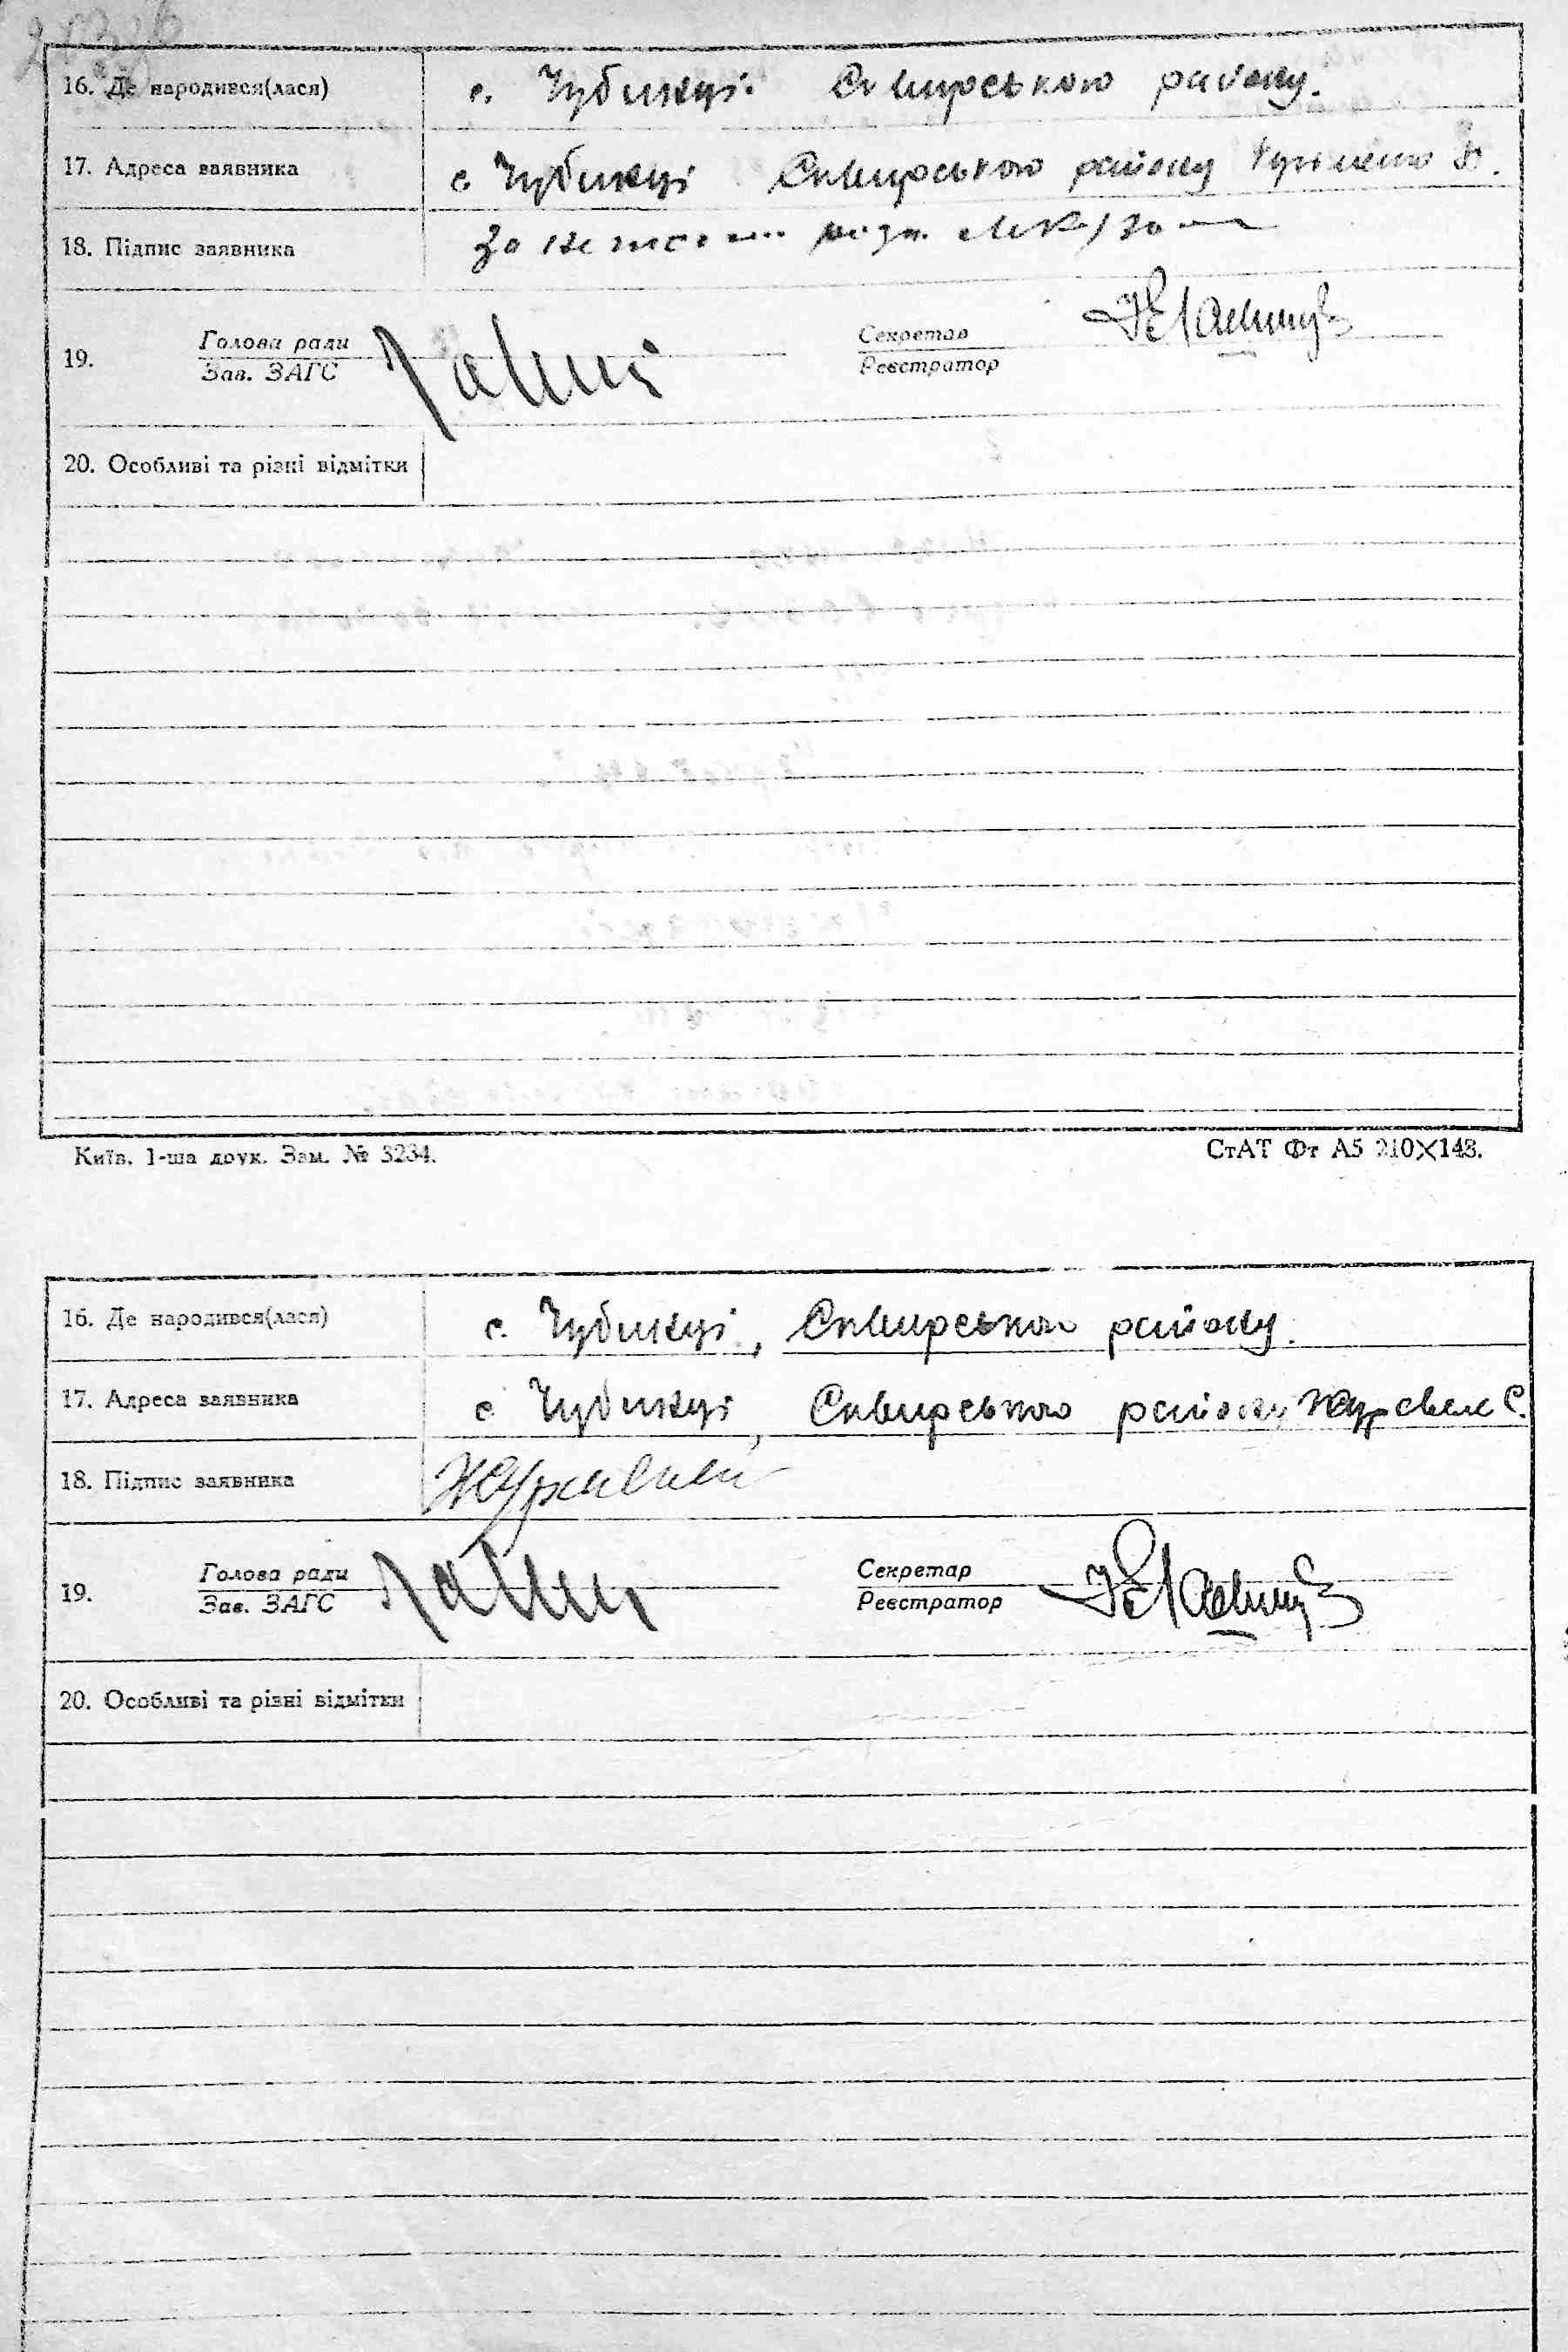 16. Де народився(лася) с. Чубинці. Сквирського району.
17. Адреса заявника с Чубинці Сквирського району
18. Підпис заявника За неписьм. розп.
Голова ради Секретар
19.
Зав. ЗАГС Реєстратор
20. Особливі та різні відмітки
Київ. 1-ша друк. Зам. № 3234. СтАТ Фт А5 210×148.
16. Де народився(лася) с. Чубинці, Сквирського району.
17. Адреса заявника с Чубинці, Сквирського району Журавель С.
18. Підпис заявника Журавель
Голова ради Секретар
19.
Зав. ЗАГС Реєстратор
20. Особливі та різні відмітки